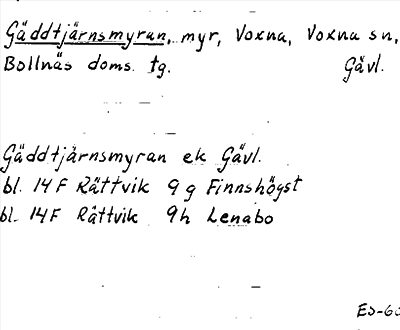 Gäddtjärnsmyran, myr, Voxna, Voxna sn,
Bollnäs doms. tg. Gävl.
Gäddtjärnsmyran ek Gävl.
bl. 14F Rättvik 9g Finnshögst
bl. 14F Rättvik 9h Lenabo